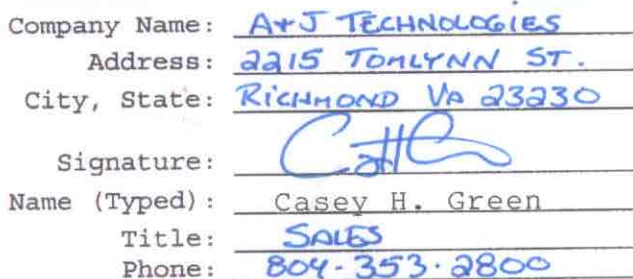 Company Name: A+J TECHNOLOGIES
Address: 2215 TOMLYNN ST.
City, State: RICHMOND VA 23230
Signature:
Name (Typed): Casey H. Green
Title: SALES
Phone: 804-353-2800